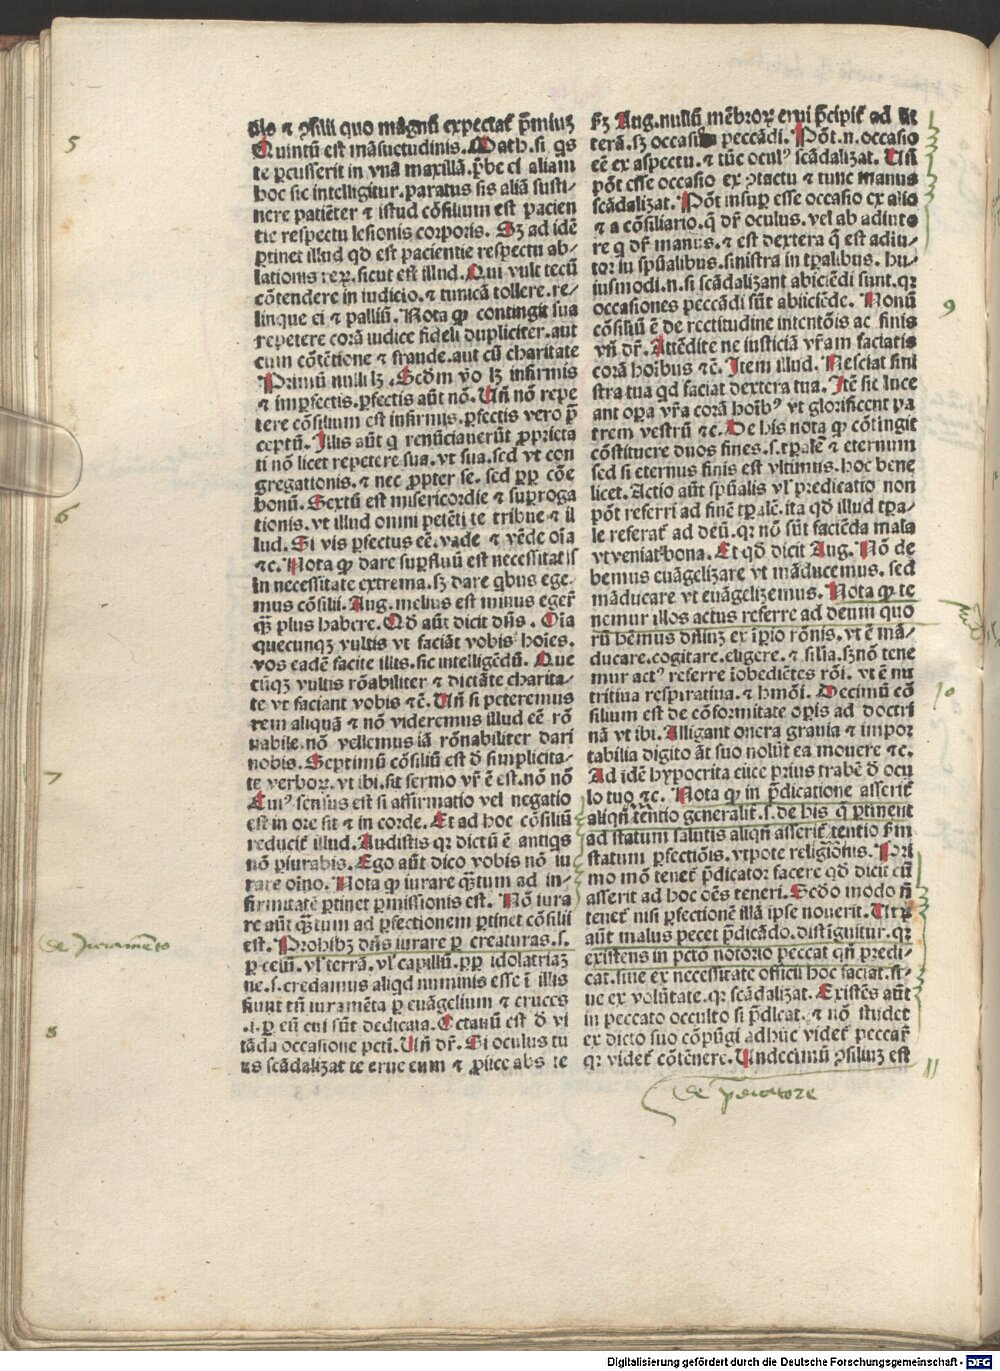 dio ⁊ ꝯsilii quo magnū expectat p̄miuꝫ
Quintū est māsuetudinis. Math. si qs
te ꝑcusserit in vnā maxillā. p̄be ei aliam
hoc sic intelligitur. paratus sis aliā susti-
nere patiēter ⁊ istud cōsilium est pacien
tie respectu lesionis corporis. Sꝫ ad idē
ꝑtinet illud qd est pacientie respectu ab-
lationis reꝝ. sicut est illud. Qui vult tecū
cōtendere in iudicio. ⁊ tunicā tollere. re-
linque ei ⁊ palliū. Nota ꝙ contingit sua
repetere corā iudice fideli dupliciter. aut
cum cōtētione ⁊ fraude. aut cū charitate
Primū nulli lꝫ. Scd̄m v̄o lꝫ infirmis
⁊ imꝑfectis. ꝑfectis aūt nō. Vn̄ nō repe
tere cōsilium est infirmis. ꝑfectis vero p̄
ceptū. Illis aūt q renūciauerūt ꝓprieta
ti nō licet repetere sua. vt sua. sed vt con
gregationis. ⁊ nec ꝓpter se. sed ꝓp̄ cōe
bonū. Sextū est misericordie ⁊ suꝑroga
tionis. vt illud omni petēti te tribue ⁊ il
lud. Si vis ꝑfectus eē. vade ⁊ vēde oīa
⁊c. Nota ꝙ dare suꝑfluū est necessitatis
in necessitate extrema. sꝫ dare qbus ege-
mus cōsilii. Aug. melius est minus eger̄
qꝫ̄ plus habere. Qd aūt dicit dn̄s. Oīa
quecunqꝫ vultis vt faciāt vobis hoīes.
vos eadē facite illis. sic intelligēdū. Que
cūqꝫ vultis rōabiliter ⁊ dictāte charita-
te vt faciant vobis ⁊c̄. Vn̄ si peteremus
rem aliquā ⁊ nō videremus illud eē rō
nabile. nō vellemus iā rōnabiliter dari
nobis. Septimū cōsiliū est ð simplicita-
te verboꝝ. vt ibi. sit sermo vr̄ ē est. nō nō
Cuiꝰ sensus est si affirmatio vel negatio
est in ore sit ⁊ in corde. Et ad hoc cōsiliū
reducit̄ illud. Audistis qꝛ dictū ē antiqs
nō ꝑiurabis. Ego aūt dico vobis nō iu
rare oīno. Nota ꝙ iurare qꝫ̄tum ad in-
firmitatē ꝑtinet ꝑmissionis est. Nō iura
re aūt qꝫ̄tum ad ꝑfectionem ꝑtinet cōsilii
est. Prohibꝫ dn̄s iurare ꝑ creaturas. s.
ꝑ celū. vl̓ terrā. vl̓ capillū. ꝓp̄ idolatriaꝫ
ne. s. credamus aliqd numinis esse ī illis
fiunt tn̄ iuramēta ꝑ euāgelium ⁊ cruces
.i. ꝑ eū cui sūt dedicata. Octauū est ð vi
tāda occasione pcti. Vn̄ dr̄. Si oculus tu
us scādalizat te erue eum ⁊ ꝓiice abs te
sꝫ Aug. nullū mēbroꝝ erui p̄cipit̄ ad lit
terā. sꝫ occasio peccādi. Pōt. n. occasio
eē ex aspectu. ⁊ tūc oculꝰ scādalizat. Vn̄
pōt esse occasio ex ꝯtactu ⁊ tunc manus
scādalizat. Pōt insuꝑ esse occasio ex alio
⁊ a cōsiliario. q̄ dr̄ oculus. vel ab adiuto
re q dr̄ manus. ⁊ est dextera q̄ est adiu-
tor in spūalibus. sinistra in tꝑalibus. hu-
iusmodi. n. si scādalizant abiciēdi sunt. qꝛ
occasiones peccādi sūt abiiciēde. Nonū
cōsiliū ē de rectitudine intentōis ac finis
vn̄ dr̄. Attēdite ne iusticiā vr̄am faciatis
corā hoībus ⁊c̄. Item illud. Nesciat sini
stra tua qd faciat dextera tua. Itē sic luce
ant oꝑa vr̄a corā hoībꝰ vt glorificent pa
trem vestrū ⁊c. De his nota ꝙ cōtingit
cōstituere duos fines. s. tꝑalē ⁊ eternum
sed si eternus finis est vltimus. hoc bene
licet. Actio aūt spūalis vl̓ predicatio non
pōt referri ad finē tꝑalē. ita qd̄ illud tꝑa-
le referat̄ ad deū. qꝛ nō sūt faciēda mala
vt veniāt bona. Et qd̄ dicit Aug. Nō de
bemus euāgelizare vt māducemus. sed
māducare vt euāgelizemus. Nota ꝙ te
nemur illos actus referre ad deum quo
rū hēmus dn̄iuꝫ ex īꝑio rōnis. vt ē mā-
ducare. cogitare. eligere. ⁊ silīa. sꝫ nō tene
mur actꝰ referre īobediētes rōi. vt ē nu
tritiua respiratiua. ⁊ hmōi. Decimū cō
silium est de cōformitate oꝑis ad doctri
nā vt ibi. Alligant onera grauia ⁊ impor
tabilia digito āt suo nolūt ea mouere ⁊c.
Ad idē hypocrita eiice prius trabē ð ocu
lo tuo ⁊c. Nota ꝙ in p̄dicatione asserit̄
aliqn̄ ītētio generalit̄. s. de his q̄ ꝑtinent
ad statum salutis aliqn̄ asserit̄ ītentio ẜm
statum ꝑfectiōis. vtpote religiōnis. Pri
mo mō tenet̄ p̄dicator facere qd̄ dicit cū
asserit ad hoc oēs teneri. Scd̄o modo n̄
tenet̄ nisi ꝑfectionē illā ipse nouerit. Vtꝝ
aūt malus pecet p̄dicādo. distiguitur. qꝛ
existens in pctō notorio peccat qn̄ predi-
cat. siue ex necessitate officii hoc faciat. si-
ue ex volūtate. qꝛ scādalizat. Existēs aūt
in peccato occulto si p̄dicat. ⁊ nō studet
ex dicto suo cōpūgi adhuc videt̄ peccar̄
qꝛ videt̄ cōtēnere. Vndecimū ꝯsiliuꝫ est
5
6
7
de Iuramēto
8
9
10
11
de p̄dicatore
Digitalisierung gefördert durch die Deutsche Forschungsgemeinschaft - DFG